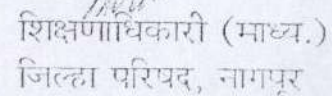 शिक्षणाधिकारी (माध्य.)
जिल्हा परिषद, नागपूर